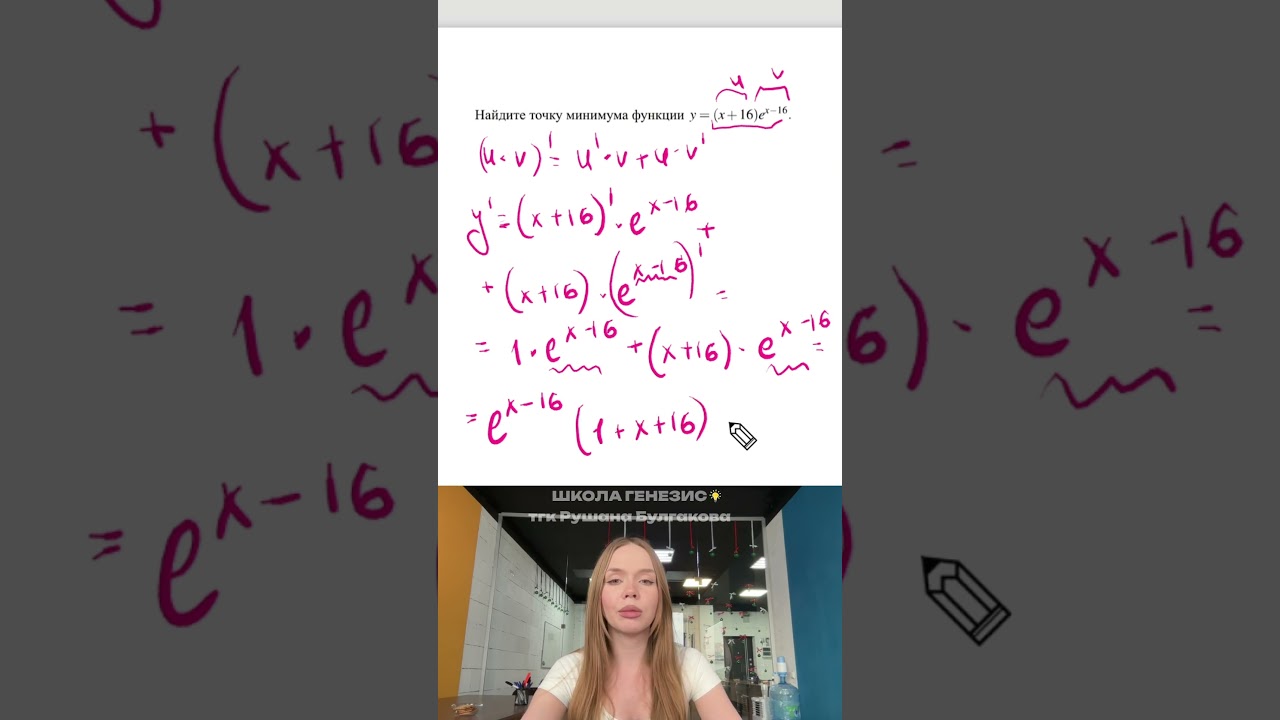 u v
Найдите точку минимума функции y = (x+16)e^{x−16}.
(u·v)' = u'·v+u·v'
y' = (x+16)'·e^{x-16} +
+ (x+16)·(e^{x-16})' =
= 1·e^{x-16} + (x+16)·e^{x-16} =
= e^{x-16} (1+x+16)
ШКОЛА ГЕНЕЗИС
тгк Рушана Булгакова